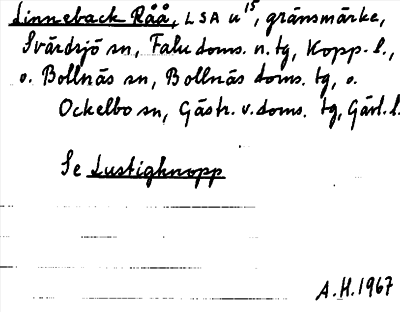 Linneback Råå, LSA u¹⁵, gränsmärke,
Svärdsjö sn, Falu doms. n. tg, Kopp. l.,
o. Bollnäs sn, Bollnäs doms. tg, o.
Ockelbo sn, Gästr. v. doms. tg, Gävl. l.
Se Lustigknopp
A.H. 1967